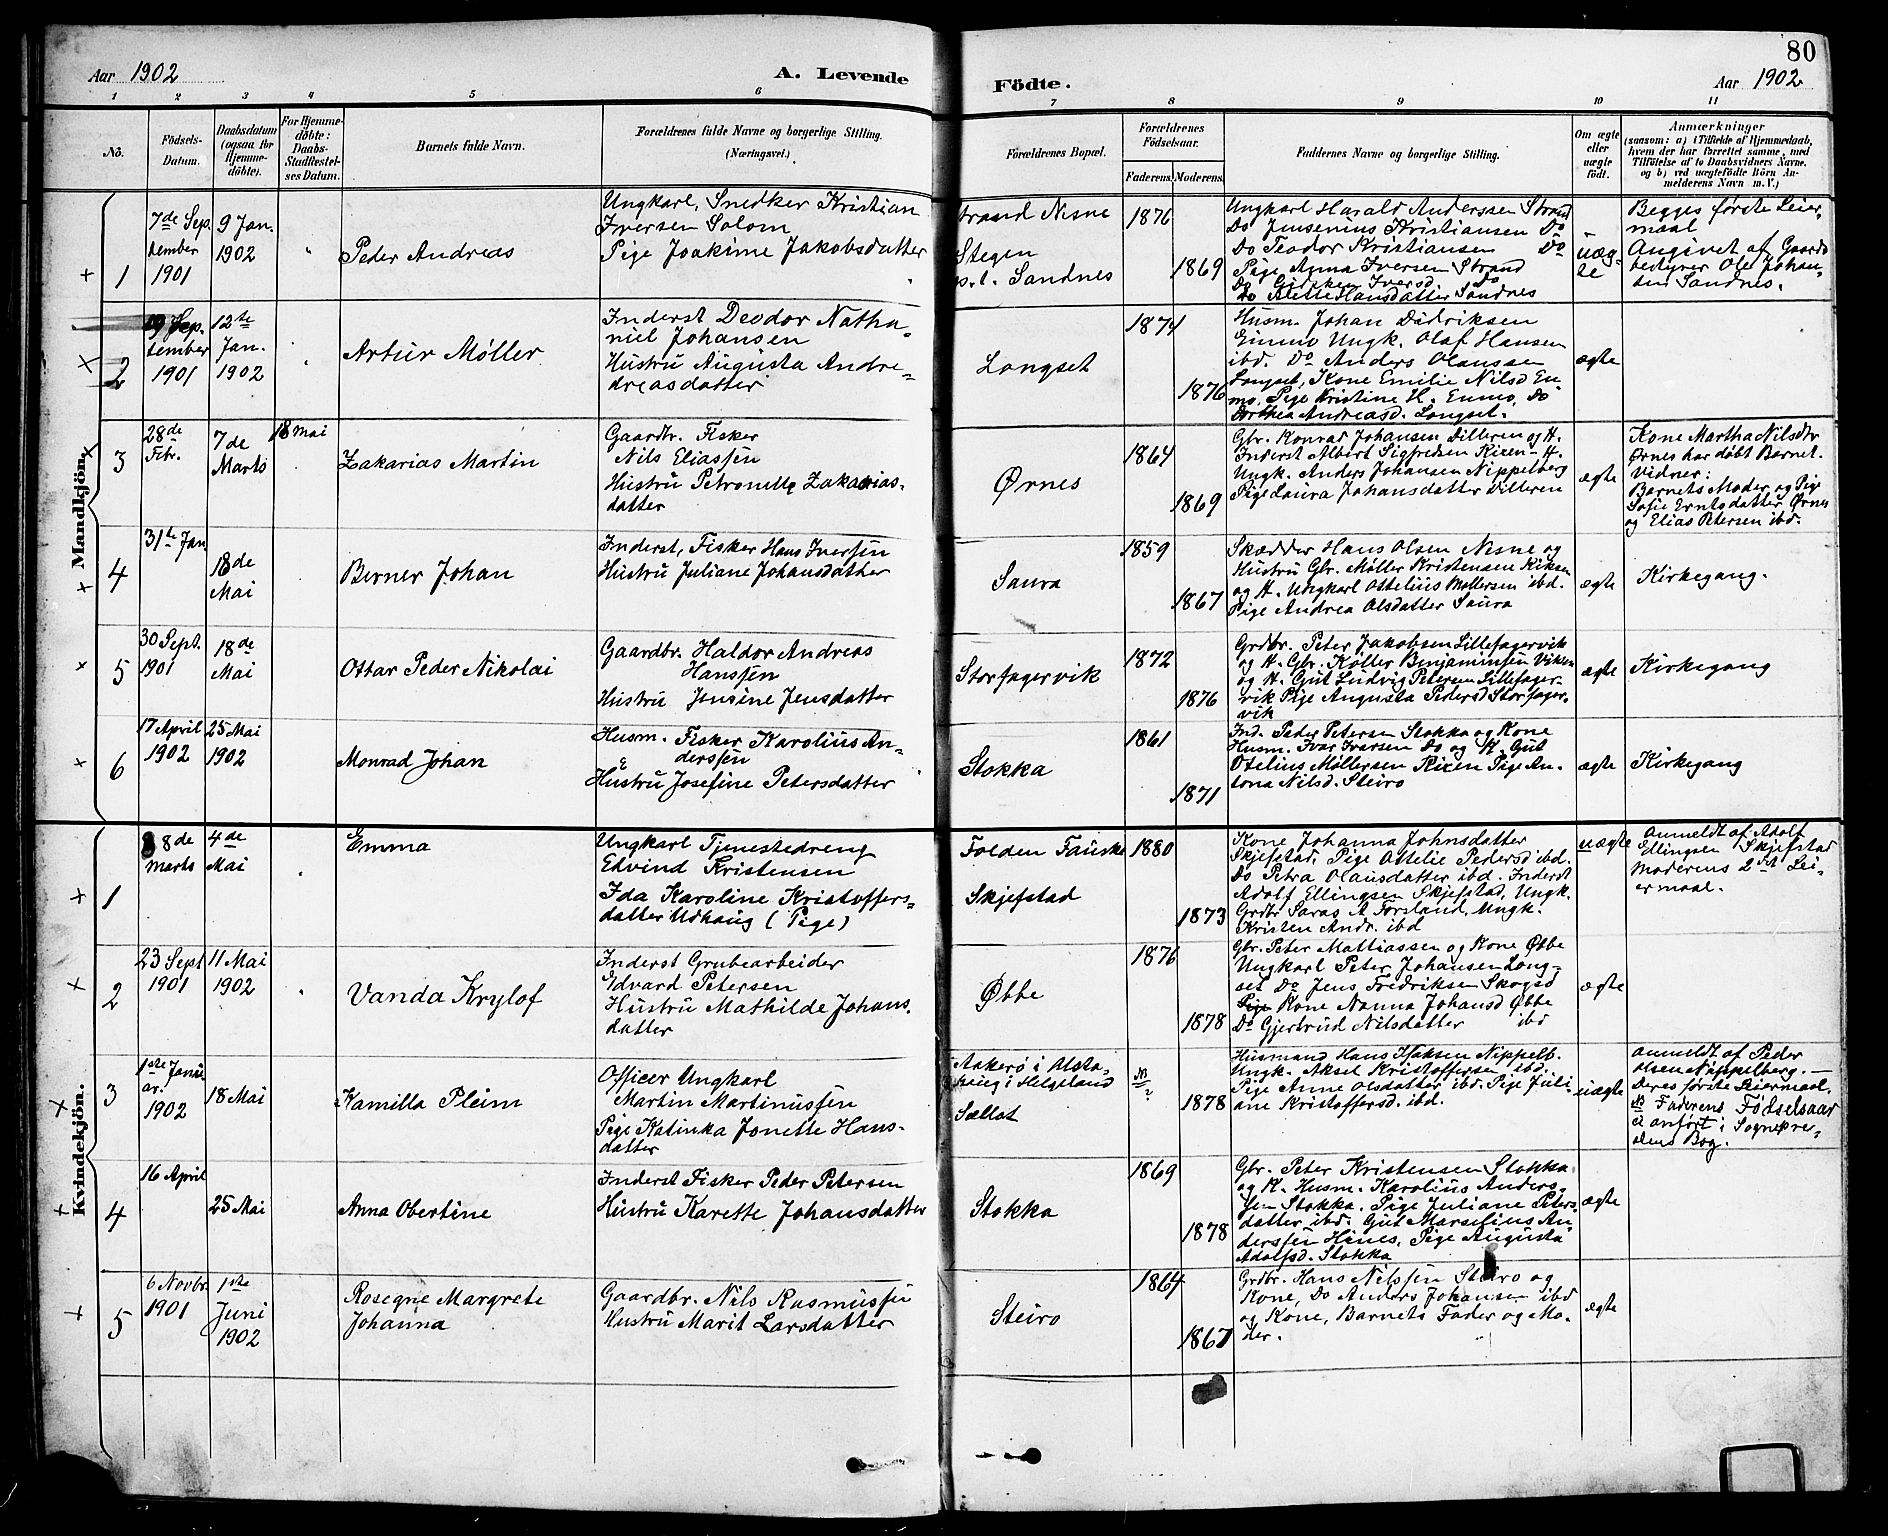 80
Aar 1902
A. Levende
Födte.
Aar 1902
1 2 3 4 5 6 7 8 9 10 11
No.
Födsels-
Datum.
Daabsdatum
(ogsaa for
Hjemme-
döbte).
For Hjemme-
döbte:
Daabs-
Stadfæstel-
ses Datum.
Barnets fulde Navn.
Forældrenes fulde Navne og borgerlige Stilling.
(Næringsvei.)
Forældrenes Bopæl.
Forældrenes
Födselsaar.
Faderens. Moderens.
Faddernes Navne og borgerlige Stilling.
Om ægte
eller
uægte
födt.
Anmærkninger
(saasom: a) i Tilfælde af Hjemmedaab,
hvem der har forrettet samme, med
Tilföielse af to Daabsvidners Navne,
og b) ved uægtefödte Börn An-
melderens Navn m. V.)
Mandkjön.
1
7de Sep.
tember
1901
9 Jan.
1902
Peder Andreas
Ungkarl, Snedker Kristian
Iversen Solom
Pige Joakime Jakobsdatter
Strand Nesne
Stegen
p.t. Sandnes
1876
1869
Ungkarl Harald Anderssen Strand
Do Jensenius Kristiansen Do
Do Teodor Kristiansen Do
Pige Anna Iversen Strand
Do Alette Hansdatter Sandnes
uæg-
te
Begges første Leier-
maal
Angivet af Gaards
bestyrer Ole Johan-
sen Sandnes.
2
19 Sep.
tember
1901
12te
Jan.
1902
Artur Møller
Inderst Deodor Natha-
niel Johansen
Hustru Augusta Andre-
dreasdatter
Longset
1874
1876
Husm. Johan Didriksen
Enmo Ungk. Olaf Hansen
ibd. Do Anders Olaussen
Longset, Kone Emilie Nilsd En-
mo, Pige Kristine H. Enmo, Do
Dorthea Andreasd. Longset.
ægte
3
28de
Febr.
7de
Marts
18 Mai
Zakarias Martin
Gaardbr. Fisker
Nils Eliassen
Hustru Petronelle Zakarias-
datter
Ørnes
1864
1869
Gbr. Konrad Johansen Dilleren og H.
Inderst Albert Sigfredsen Kixen - H.
Ungk. Anders Johansen Nippelberg
Pige Laura Johansdatter Dilleren
ægte
Kone Martha Nilsdtr
Ørnes har døbt Barnet.
Vidner:
Barnets Moder og Pige
Sofie Erntsdatter Ørnes
og Elias Petersen ibd.
4
31te Jan.
18de
Mai
Berner Johan
Inderst, Fisker Hans Iversen
Hustru Juliane Johansdatter
Saura
1859
1867
Skrædder Hans Olsen Nesne og
Hustru Gbr. Møller Kristensen Kiksen
og H. Ungkarl Ottelius Møllersen ibd.
Pige Andrea Olsdatter Saura
ægte
Kirkegang.
5
30 Sept.
1901
18de
Mai
Ottar Peder Nikolai
Gaardbr. Haldor Andreas
Hanssen
Hustru Jensine Jensdatter
Storfagervik
1872
1876
Grdbr. Peter Jakobsen Lillefagervik
og H. Gbr. Køller Benjaminsen Viksen
og H. Gut Ludvig Petersen Lillefager-
vik Pige Augusta Pedersd Storfager-
vik
ægte
Kirkegang
6
17 April
1902
25 Mai
1902
Monrad Johan
Husm. Fisker Karolius An-
derssen
Hustru Josefine Petersdatter
Stokka
1861
1871
Ind. Peder Petersen Stokka og Kone
Husm. Ivar Iversen Do og K. Gut
Otelius Møllersen Kixen Pige An-
tona Nilsd. Steiro
ægte
Kirkegang
Kvindekjön.
1
8de
Marts
4de
Mai
Emma
Ungkarl Tjenestedreng
Edvind Kristensen
Ida Karoline Kristoffers-
datter Udhaug (Pige)
Folden Fauske
Skjefstad
1880
1873
Kone Johanna Johnsdatter
Skjefstad, Pige Ottelie Pedersd ibd.
Do Petra Olausdatter ibd. Inderst
Adolf Ellingsen Skjefstad, Ungk.
Grdbr Saras A. Forsland, Ungk.
Kristen Andr. ibd
uægte
Anmeldt af Adolf
Ellingsen Skjefstad
Moderens 2det Lei-
ermaal.
2
23 Sept
1901
11 Mai
1902
Vanda Krylof
Inderst Grubearbeider
Edvard Petersen
Hustru Mathilde Johans-
datter
Øbbe
1876
1878
Gbr. Peter Mattiassen og Kone Øbbe
Ungkarl Peter Johansen Long-
set Do Jens Fredriksen Skogsø
Pige Kone Nanna Johansd Øbbe
Do Gjertrud Nilsdatter ibd
ægte
3
1ste Janu-
ar.
1902
18 Mai
Kamilla Pleim
Officer Ungkarl
Martin Martinussen
Pige Katinka Jonette Hans-
datter
Aakerø i Alsta-
haug i Helgeland
Sællot
1878
Husmand Hans Isaksen Nippelb.
Ungk. Aksel Kristoffersen ibd.
Pige Anne Olsdatter ibd. Pige Juli-
ane Kristoffersd. ibd.
uægte
Anmeldt af Peder
Olsen Nippelberg. —
Deres første Leiermaal.
Faderens Fødselsaar
anført i Sognepre-
stens Bog.
4
16 April
25 Mai
Anna Obertine
Inderst Fisker Peder Petersen
Hustru Karette Johansdatter
Stokka
1869
1878
Gbr. Peter Kristensen Stokka
og K. Husm. Karolius Anders-
sen Stokka. Pige Juliane Peters-
datter ibd. Gut Marselius An-
derssen Hines, Pige Augusta
Adolfsd. Stokka
ægte
5
6 Novbr.
1901
1ste
Juni
1902
Rosegne Margrete
Johanna
Gaardbr. Nils Rasmussen
Hustru Marit Larsdatter
Steiro
1864
1867
Grdbr. Hans Nilssen Steiro og
Kone, Do Anders Johansen ibd
og Kone, Barnets Fader og Mo-
der.
ægte